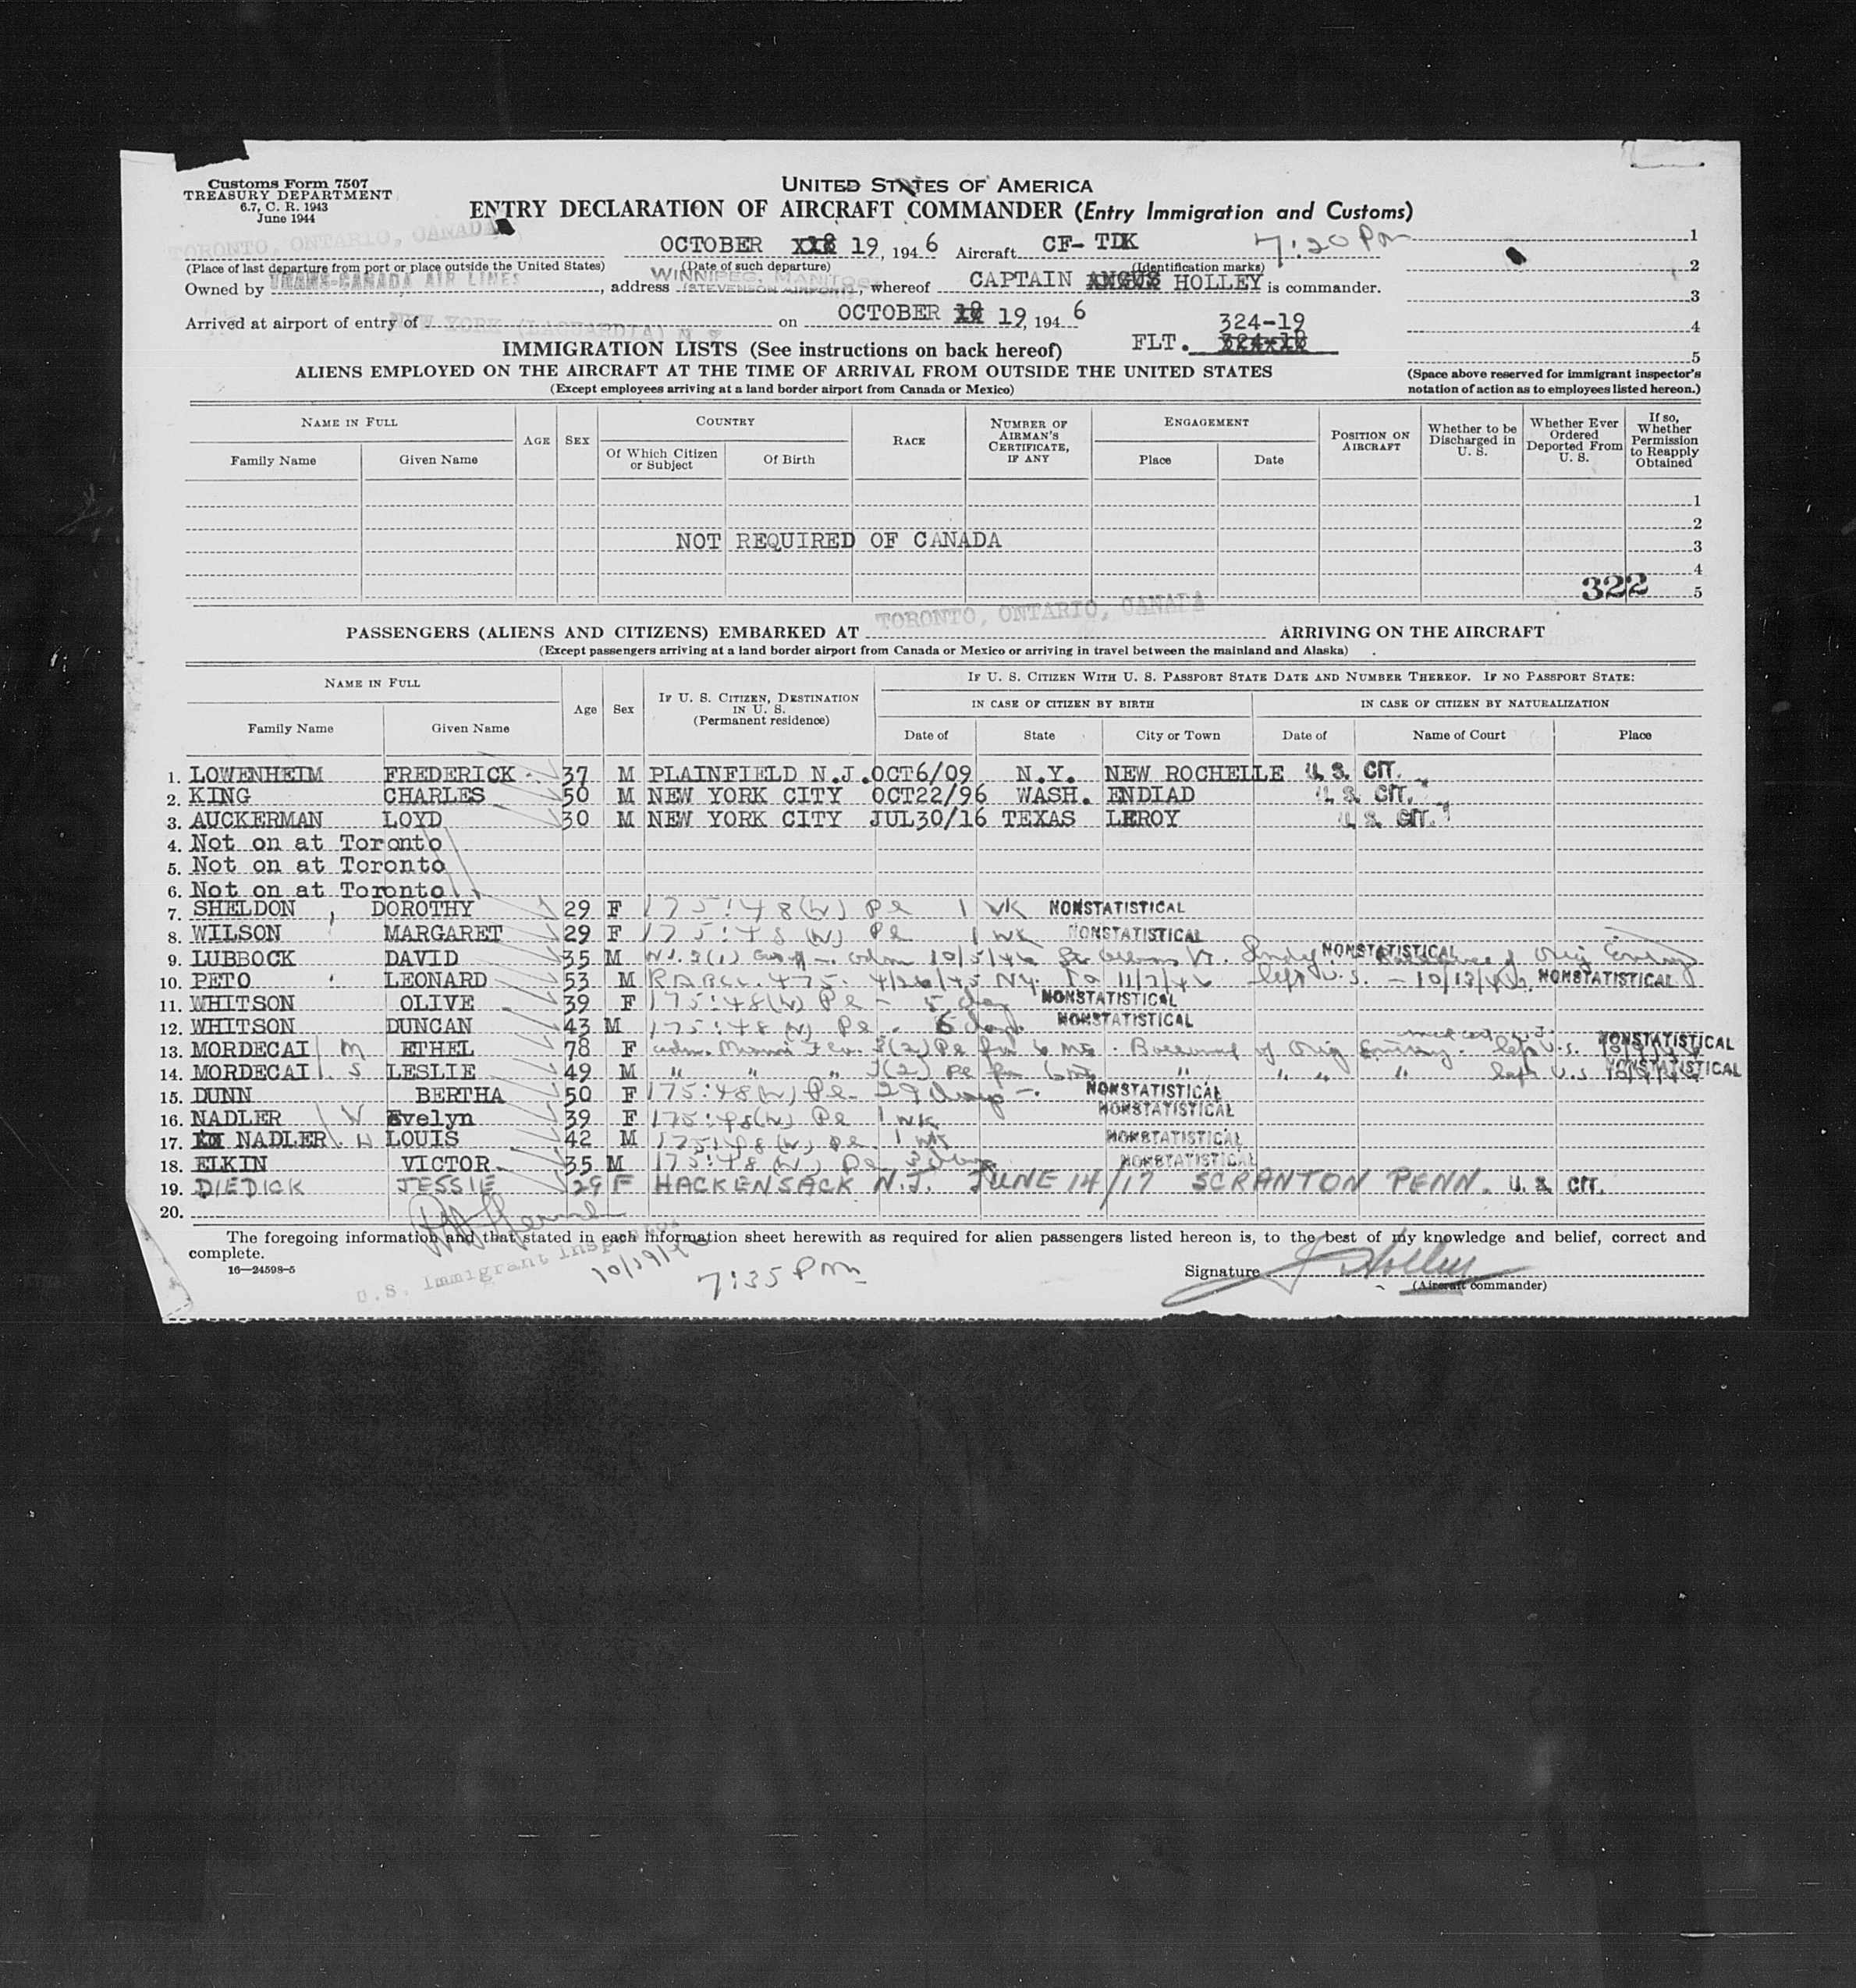 Customs Form 7507
TREASURY DEPARTMENT
6.7, C. R. 1943
June 1944
UNITED STATES OF AMERICA
ENTRY DECLARATION OF AIRCRAFT COMMANDER (Entry Immigration and Customs)
TORONTO, ONTARIO, CANADA OCTOBER 19, 1946 Aircraft CF-TDK 7:20 Pm 1
(Place of last departure from port or place outside the United States) (Date of such departure) (Identification marks) 2
Owned by TRANS-CANADA AIR LINES, address WINNIPEG, MANITOBA (STEVENSON AIRPORT), whereof CAPTAIN ANGUS HOLLEY is commander. 3
Arrived at airport of entry of NEW YORK (LAGUARDIA) N.Y. on OCTOBER 18 19, 1946 324-19 4
IMMIGRATION LISTS (See instructions on back hereof) FLT. 324-18 5
ALIENS EMPLOYED ON THE AIRCRAFT AT THE TIME OF ARRIVAL FROM OUTSIDE THE UNITED STATES
(Except employees arriving at a land border airport from Canada or Mexico)
(Space above reserved for immigrant inspector's notation of action as to employees listed hereon.)
NAME IN FULL AGE SEX COUNTRY RACE NUMBER OF AIRMAN'S CERTIFICATE, IF ANY ENGAGEMENT POSITION ON AIRCRAFT Whether to be Discharged in U. S. Whether Ever Ordered Deported From U. S. If so, Whether Permission to Reapply Obtained
Family Name Given Name Of Which Citizen or Subject Of Birth Place Date
1
2
NOT REQUIRED OF CANADA 3
4
322 5
PASSENGERS (ALIENS AND CITIZENS) EMBARKED AT TORONTO, ONTARIO, CANADA ARRIVING ON THE AIRCRAFT
(Except passengers arriving at a land border airport from Canada or Mexico or arriving in travel between the mainland and Alaska)
NAME IN FULL Age Sex IF U. S. CITIZEN, DESTINATION IN U. S. (Permanent residence) IF U. S. CITIZEN WITH U. S. PASSPORT STATE DATE AND NUMBER THEREOF. IF NO PASSPORT STATE:
IN CASE OF CITIZEN BY BIRTH IN CASE OF CITIZEN BY NATURALIZATION
Family Name Given Name Date of State City or Town Date of Name of Court Place
1. LOWENHEIM FREDERICK 37 M PLAINFIELD N.J. OCT6/09 N.Y. NEW ROCHELLE U. S. CIT.
2. KING CHARLES 50 M NEW YORK CITY OCT22/96 WASH. ENDIAD U. S. CIT.
3. AUCKERMAN LOYD 30 M NEW YORK CITY JUL30/16 TEXAS LEROY U. S. CIT.
4. Not on at Toronto
5. Not on at Toronto
6. Not on at Toronto
7. SHELDON, DOROTHY 29 F 175:48(W) Pl 1 WK NONSTATISTICAL
8. WILSON MARGARET 29 F 175:48 (W) Pl 1 WK NONSTATISTICAL
9. LUBBOCK DAVID 35 M 10/5/46 NONSTATISTICAL Orig Entry
10. PETO LEONARD 53 M 475. 4/26/45 N.Y. To 11/7/46 left U.S. - 10/13/46, NONSTATISTICAL
11. WHITSON OLIVE 39 F 175:48(W) Pl - 5 days NONSTATISTICAL
12. WHITSON DUNCAN 43 M 175:48 (W) Pl - 5 days NONSTATISTICAL
13. MORDECAI M ETHEL 78 F adm. Miami Fla. 3(2) Pl for 6 Ms. of Orig Entry. left U.S. NONSTATISTICAL
14. MORDECAI S LESLIE 49 M " " " 3(2) Pl for 6 Ms " " " " left U.S NONSTATISTICAL
15. DUNN BERTHA 50 F 175:48(W) Pl - 29 days -. NONSTATISTICAL
16. NADLER W Evelyn 39 F 175:48(W) Pl 1 WK NONSTATISTICAL
17. NADLER H LOUIS 42 M 175:48 (W) Pl 1 WK NONSTATISTICAL
18. ELKIN VICTOR 35 M 175:48 (W) Pl 3 days NONSTATISTICAL
19. DIEDICK JESSIE 29 F HACKENSACK N.J. JUNE 14/17 SCRANTON PENN. U. S. CIT.
20.
The foregoing information and that stated in each information sheet herewith as required for alien passengers listed hereon is, to the best of my knowledge and belief, correct and
complete.
16—24598-5
U.S. Immigrant Inspector 10/19/46
7:35 Pm
Signature J Holley
(Aircraft commander)